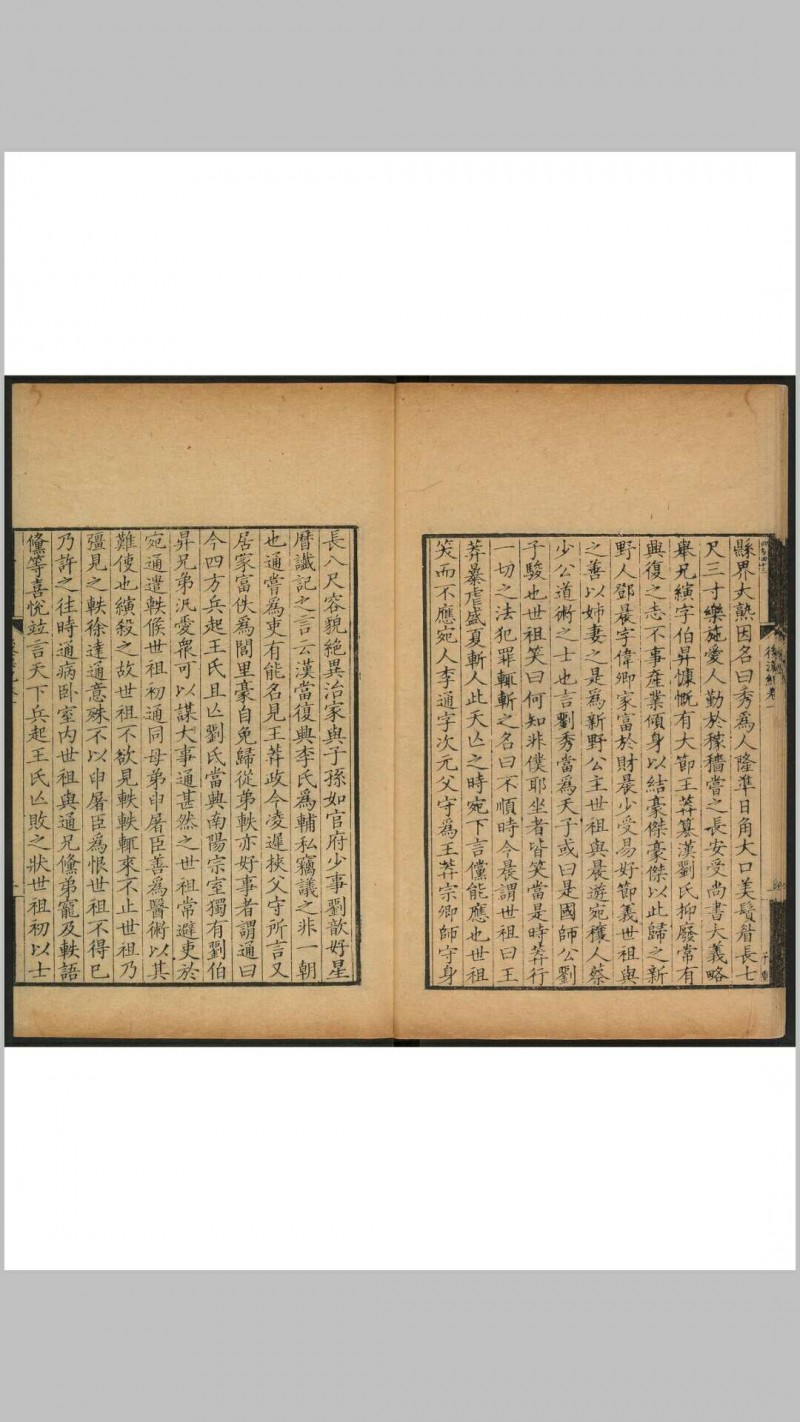 縣界大熟因名曰秀爲人隆準日角大口美鬚眉長七
尺三寸樂施愛人勤於稼穡嘗之長安受尚書大義略
舉兄縯字伯昇慷慨有大節王莽篡漢劉氏抑廢常有
興復之志不事產業傾身以結豪傑豪傑以此歸之新
野人鄧晨字偉卿家富於財晨少受易好節義世祖與
之善以姊妻之是爲新野公主世祖與晨遊宛穰人蔡
少公道術之士也言劉秀當爲天子或曰是國師公劉
子駿也世祖笑曰何知非僕耶坐者皆笑當是時莽行
一切之法犯罪輒斬之名曰不順時令晨謂世祖曰王
莽暴虐盛夏斬人此天亡之時宛下言儻能應也世祖
笑而不應宛人李通字次元父守爲王莽宗卿師守身
長八尺容貌絕異治家與子孫如官府少事劉歆好星
曆讖記之言云漢當復興李氏爲輔私竊議之非一朝
也通嘗爲吏有能名見王莽政令凌遲挾父守所言又
居家富佚爲閭里豪自免歸從弟軼亦好事者謂通曰
今四方兵起王氏且亡劉氏當興南陽宗室獨有劉伯
昇兄弟汎愛衆可以謀大事通甚然之世祖常避吏於
宛通遣軼候世祖初通同母弟申屠臣善爲醫術以其
難使也縯殺之故世祖不欲見軼軼輒來不止世祖乃
彊見之軼徐達通意殊不以申屠臣爲恨世祖不得已
乃許之往時通病卧室内世祖與通兄儵弟寵及軼語
儵等喜悅竝言天下兵起王氏亡敗之狀世祖初以士
後漢紀卷一